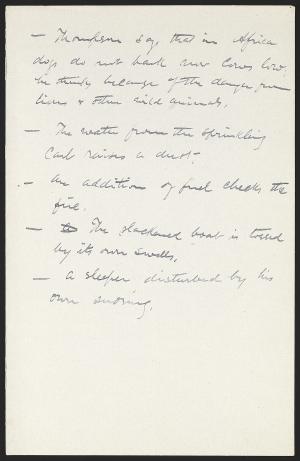 — Thompson says that in Africa
dogs do not bark nor cows low;
he thinks because of the danger from
lions & other wild animals.
— The water from the sprinkling
cart raises a dust.
— an addition of fuel checks the
fire.
— The slackened boat is tossed
by its own swells.
— a sleeper disturbed by his
own snoring.